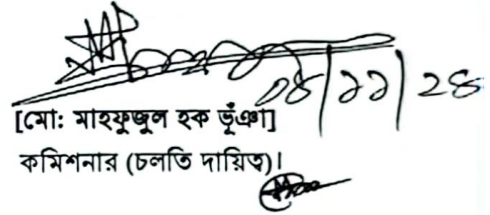 ০৪|১১|২৪
[মো: মাহফুজুল হক ভূঁঞা]
কমিশনার (চলতি দায়িত্ব)।